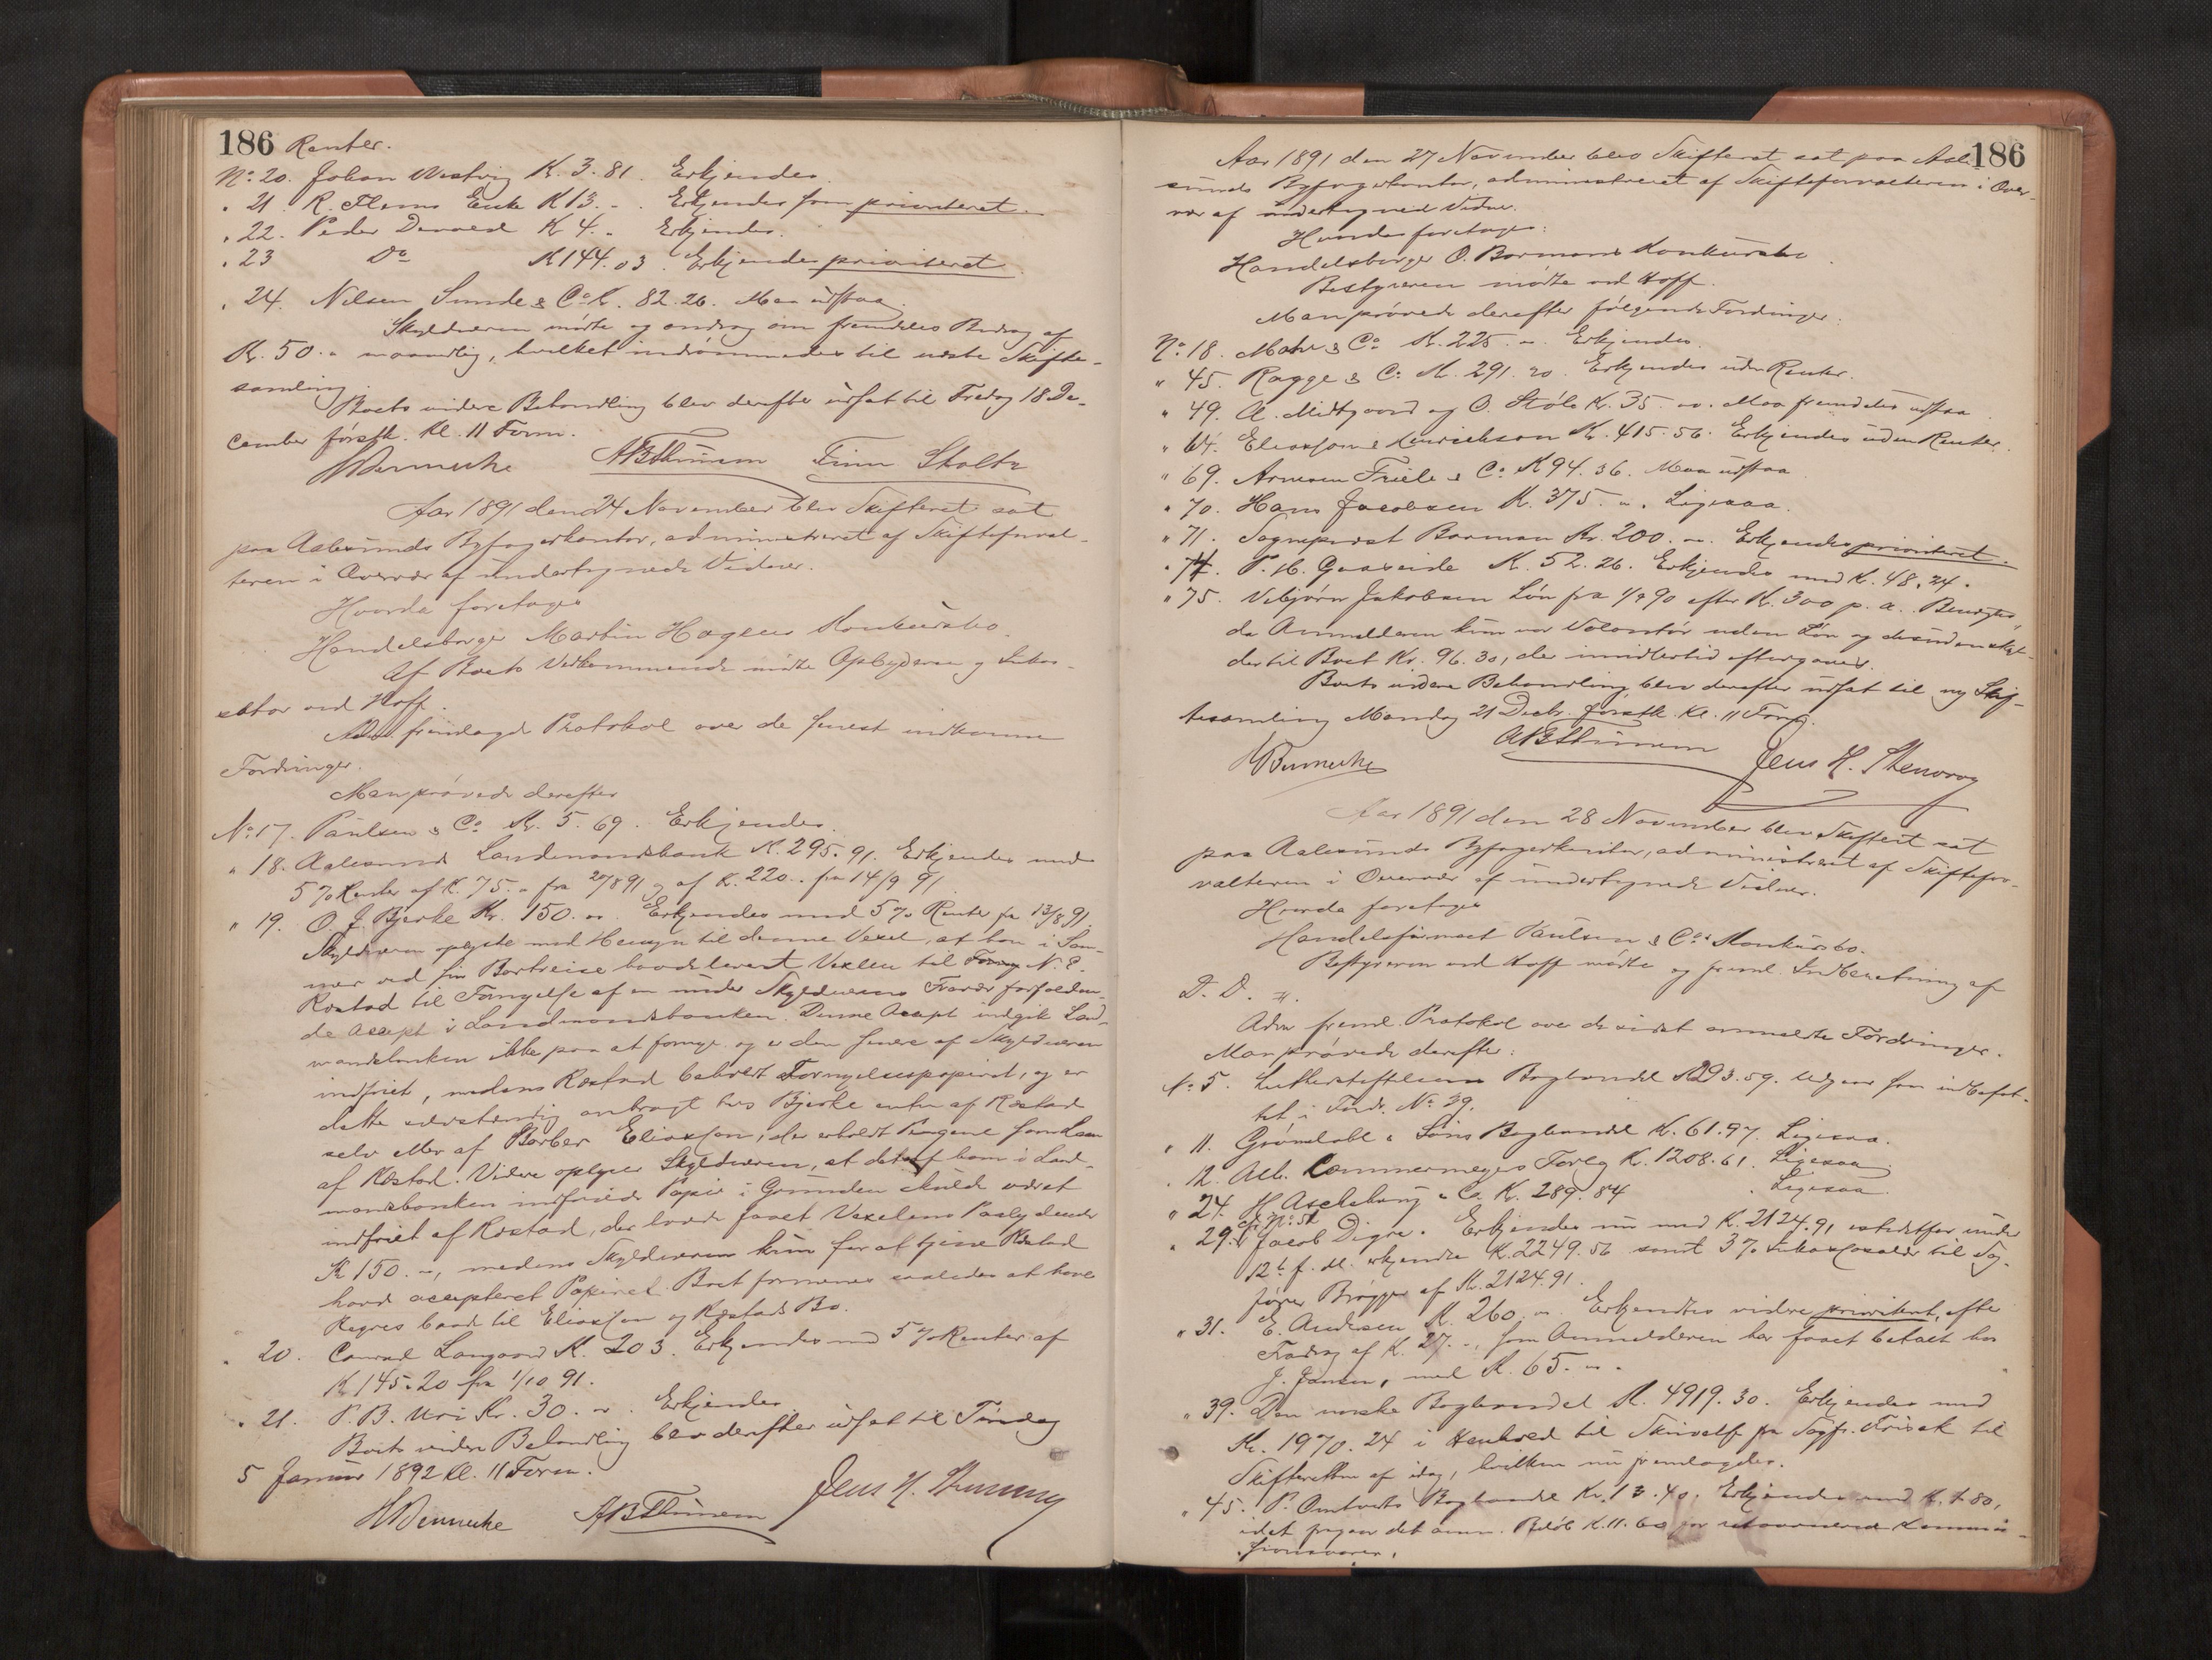 186 Renter.
No. 20. Johan Westvig K. 3.81. Erkjendes.
" 21. R. Flems Enke K 13.- . Erkjendes som prioriteret.
" 22. Peder Devold K 4.- Erkjendes.
" 23 Do K 144.03. Erkjendes prioriteret.
" 24. Nilsen Sunde & Co K. 82.26. Maa udstaa.
Skyldneren mødte og androg om fremdeles Bidrag af
Kr. 50.- maanedlig, hvilket indrømmedes til næste Skifte-
samling.
Boets videre Behandling blev derefter udsat til Fredag 18 De-
cember førstk. Kl. 11 Form.
ABThinem Finn Stoltz
Aar 1891 den 24 November blev Skifteret sat
paa Aalesunds Byfogedkontor, administreret af Skifteforval-
teren i Overvær af undertegnede Vidner.
Hvorda foretoges
Handelsborger Martin Hagens Konkursbo.
Af Boets Vedkommende mødte Opbyderen og Inkas-
sator ord Hoff.
Adm. fremlagde Protokol over de senest indkomne
Fordringer.
Man prøvede derefter
No. 17. Paulsen & Co Kr. 5.69. Erkjendes.
" 18. Aalesunds Landmandsbank K. 295.91. Erkjendes med
5 % Renter af K. 75.- fra 20/8 91 og af K. 220.- fra 14/9 91
" 19. O. J. Bjerke Kr. 150.-. Erkjendes med 5 % Renter fra 13/8 91.
Skyldneren oplyste med Hensyn til denne Vexel, at han i Som-
mer ved sin Bortreise havde leveret Vexlen til N. P.
Røstad til Fornyelse af en under Skyldnerens Fravær forfalden-
de Accept i Landmandsbanken. Denne Accept indgik Land-
mandsbanken ikke paa at fornye og er den senere af Skyldneren
indfriet, medens Røstad beholdt Fornyelsespapiret, og er
dette selvstændig anbragt hos Bjerke enten af Røstad
selv eller af Barber Eliassen, der erholdt Pengene som Laan
af Røstad. Videre oplyser Skyldneren, at det af ham i Land-
mandsbanken indfriede Papir i Grunden skulde været
indfriet af Røstad, der havde faaet Vexelens Paalydende
K 150.-, medens Skyldneren kun for at tjene Røstad
havde accepteret Papiret. Boet formenes saaledes at have
Regres baade til Eliassen og Røstads Bo.
" 20. Conrad Langaard K. 203. Erkjendes med 5 % Renter af
K 145.20 fra 1/10 91.
" 21. P. B. Uri Kr. 30.-. Erkjendes
Boets videre Behandling blev derefter udsat til Tirsdag
5 Januar 1892 Kl. 11 Form.
ABThinem Jens H.
186
Aar 1891 den 27 November blev Skifteret sat paa Aale-
sunds Byfogedkontor, administreret af Skifteforvalteren i Over-
vær af undertegnede Vidner.
Hvorda foretoges:
Handelsborger O. Bormans Konkursbo.
Bestyreren mødte ved Hoff.
Man prøvede derefter følgende Fordringer:
No. 18. Mohr & Co K. 225.-. Erkjendes.
" 45. Rogge & Co K. 291.20. Erkjendes uden Renter.
" 49. A. Midtgaard og O. Støle Kr. 35.-. Maa fremdeles udstaa
" 64. Eliassen & Henrichsen Kr. 415.56. Erkjendes uden Renter.
" 69. Arnesen Friele & Co K 94.36. Maa udstaa
" 70. Hans Jacobsen K. 375.-. Ligesaa.
" 71. Sogneprest Borman Kr. 200.-. Erkjendes prioriteret.
" 74. P. H. Gaaseide K. 52.26. Erkjendes med K. 48.24.
" 75. Vebjørn Jakobsen Løn fra 1/9 90 efter Kr. 300 p. a. Benegtes,
da Anmelderen kun var Volontør uden Løn og desuden skyl-
der til Boet Kr. 96.30, der imidlertid eftergaves.
Boets videre Behandling blev derefter udsat til ny Skif-
tesamling Mandag 21 Decbr. førstk. Kl. 11 Form.
ABThinem Jens H.
Aar 1891 den 28 November blev Skifteret sat
paa Aalesunds Byfogedkontor, administreret af Skiftefor-
valteren i Overvær af undertegnede Vidner.
Hvorda foretoges
Handelsfirmaet Paulsen & Co's Konkursbo.
Bestyreren ord Hoff mødte og freml. Indberetning af
D. D.
Adm freml. Protokol over de sidst anmeldte Fordringer.
Man prøvede derefter:
No. 5. Lutherstiftelsens Boghandel K 293.59. Udgaar som indbefat-
tet i Fordr. No. 39.
" 11. Grøndahl & Søns Boghandel K. 61.97. Ligesaa.
" 12. Alb. Cammermeyers Forlag K. 1208.61. Ligesaa
" 24. H. Aschehoug & Co. K. 289.84 Ligesaa.
" 29. Jacob Digre. Erkjendes nu med K. 2124.91 istedetfor under
12te f. M. erkjendte K. 2249.56 samt 3 % Inkassosalær til Sag-
fører Brøgger af Kr. 2124.91.
" 31. E. Andersen K. 260.-. Erkjendtes videre prioritert, efter
Fradrag af K. 27.-, som Anmelderen har faaet betalt hos
J. Jansen, med K. 65.-.
" 39. Den norske Boghandel K. 4919.30. Erkjendes med
Kr. 1970.24 i Henhold til Skrivelse fra Sagf. Frisak til
Skifteretten af idag, hvilken nu fremlagdes.
" 45. P. Omtvedts Boghandel Kr. 13.40. Erkjendes med K. 1.80,
idet fragaar det anm. Beløb K. 11.60 for returnerede Kommis-
sionsvarer.